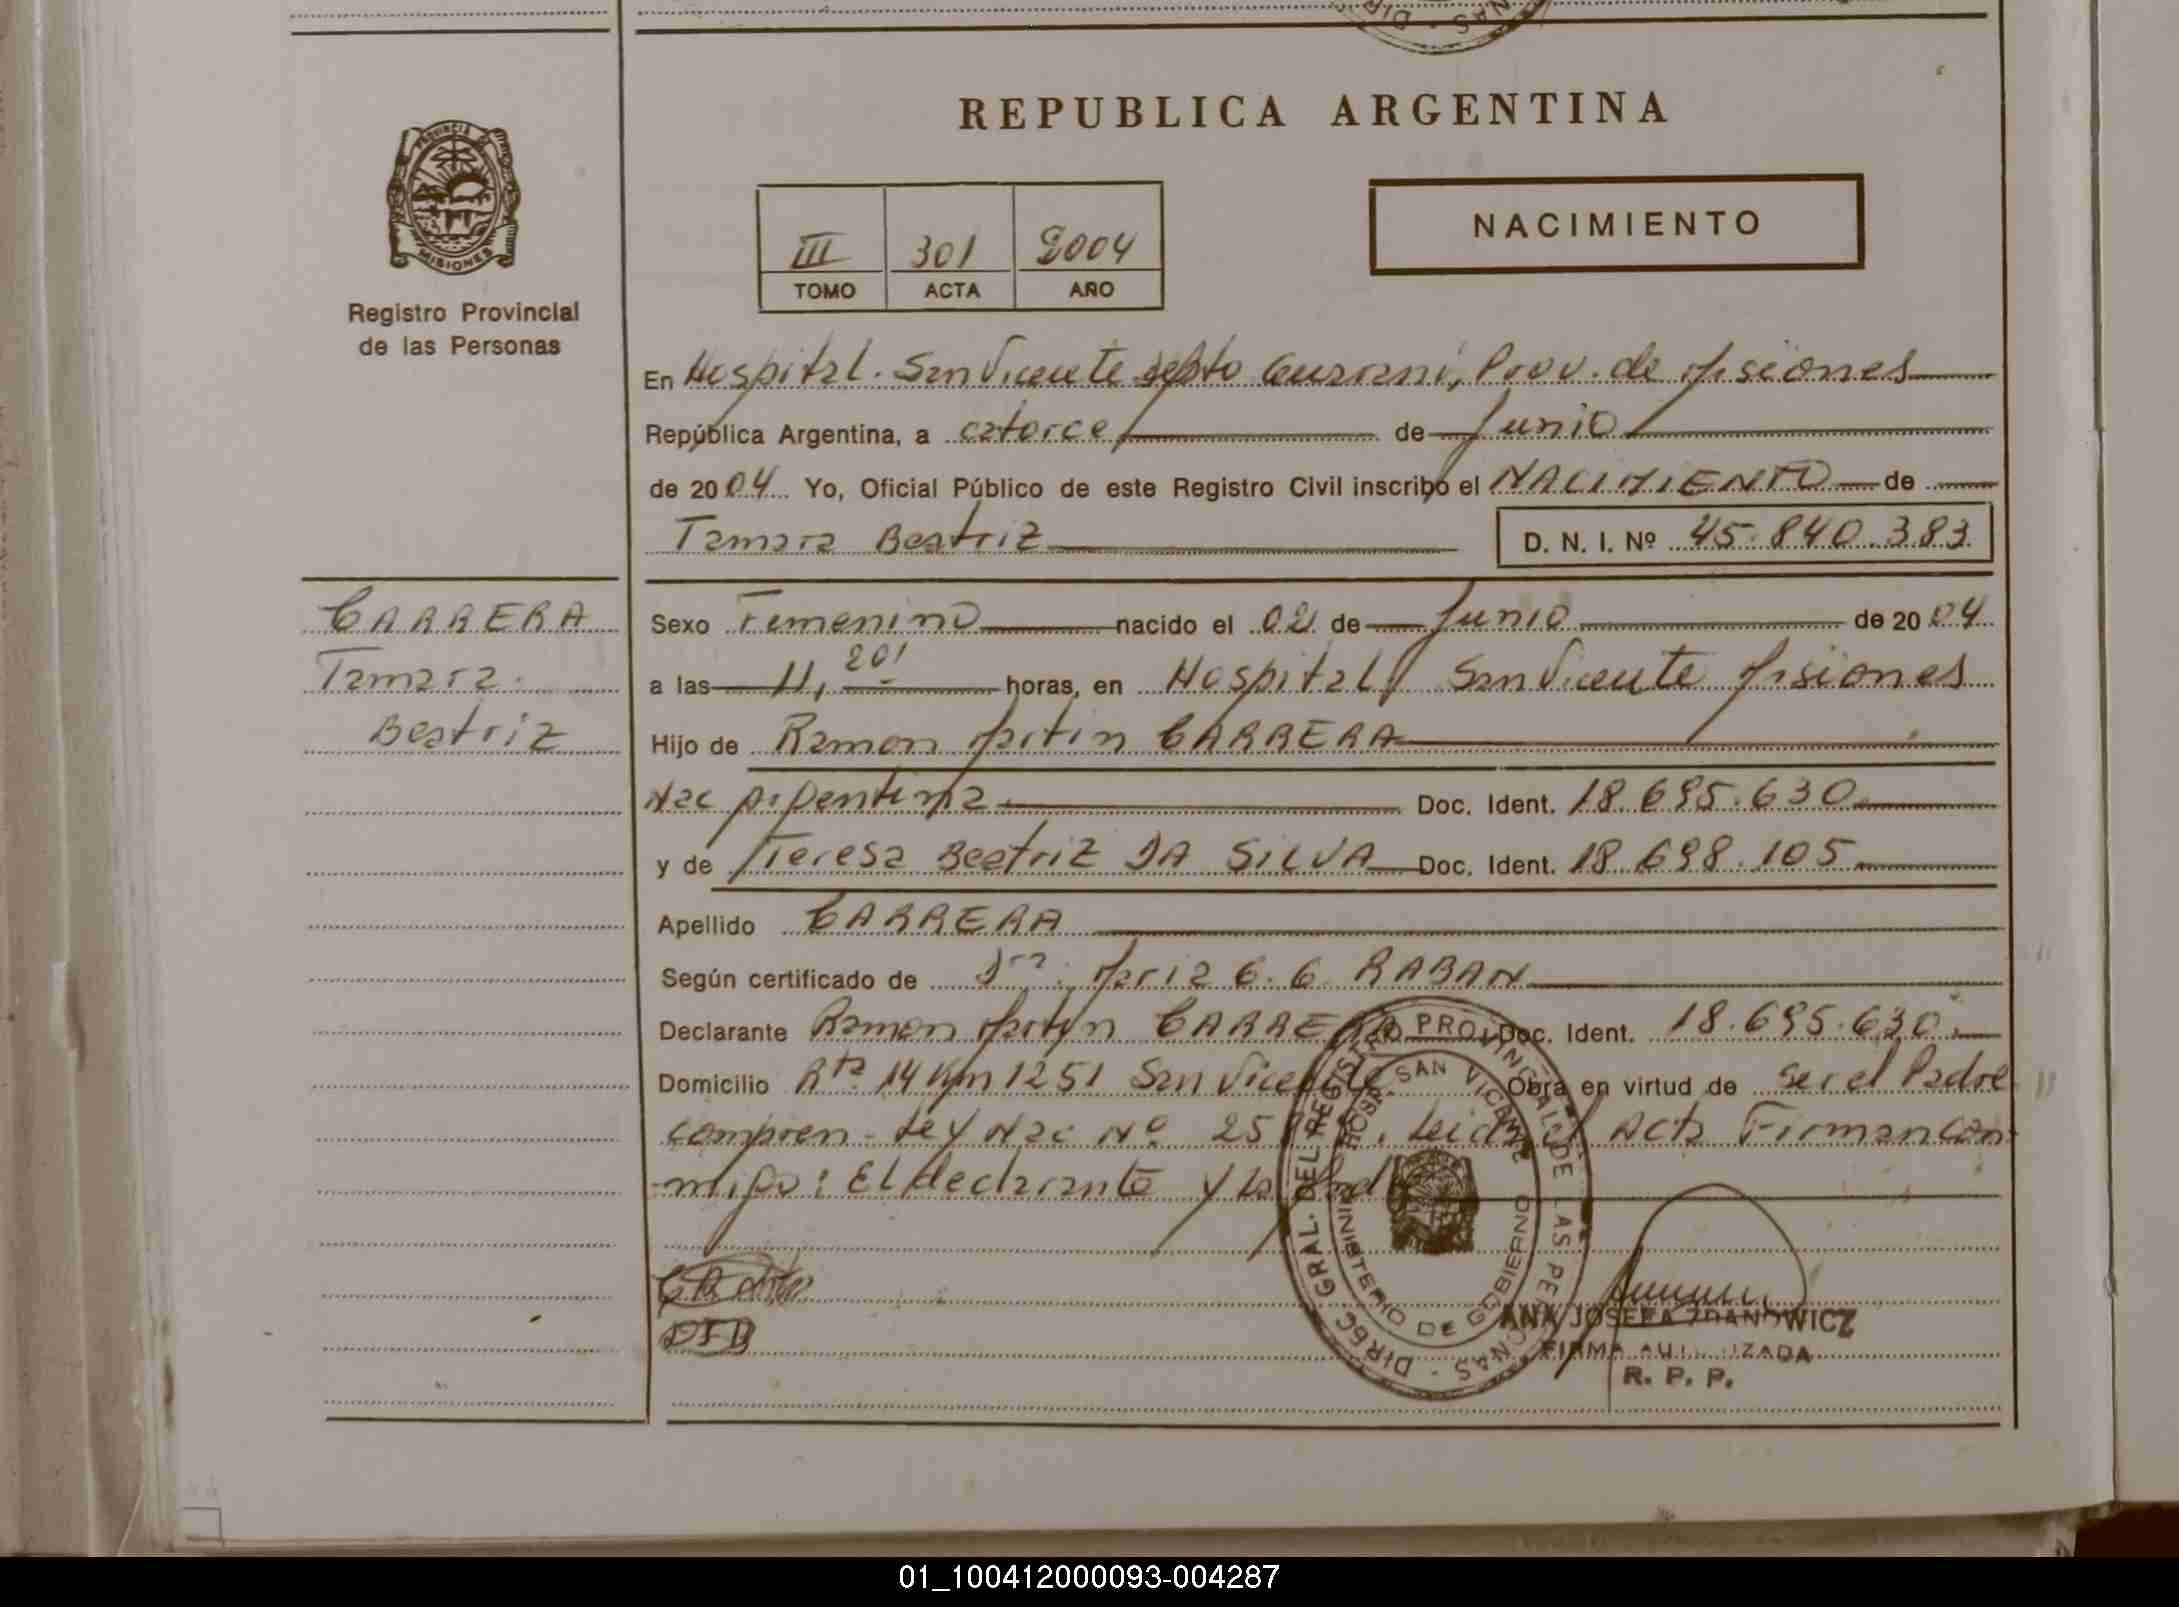 REPUBLICA ARGENTINA
PROVINCIA
MISIONES
Registro Provincial
de las Personas
NACIMIENTO
III 301 2004
TOMO ACTA AÑO
En Hospital. San Vicente depto Guarani, Prov. de Misiones
República Argentina, a catorce de Junio
de 2004 Yo, Oficial Público de este Registro Civil inscribo el NACIMIENTO de
Tamara Beatriz D. N. I. Nº 45.840.383
CARRERA
Tamara
Beatriz
Sexo Femenino nacido el 02 de Junio de 2004
a las 11,20' horas, en Hospital San Vicente Misiones
Hijo de Ramon Martin CARRERA
Nac Argentina Doc. Ident. 18.695.630
y de Teresa Beatriz DA SILVA Doc. Ident. 18.698.105
Apellido CARRERA
Según certificado de Dra. Maria G. G. RABAN
Declarante Ramon Martin CARRERA Doc. Ident. 18.695.630
Domicilio Rta 14 Km 1251 San Vicente Obra en virtud de ser el Padre
compren- Ley Nac Nº 25 Leida el Acta Firman con-
migo: El declarante y la
DIREC GRAL. DEL REGISTRO PROVINCIAL DE LAS PERSONAS
HOSP. SAN VICENTE
MINISTERIO DE GOBIERNO
ANA JOSEFA ZDANOWICZ
FIRMA AUTORIZADA
R. P. P.
01_100412000093-004287